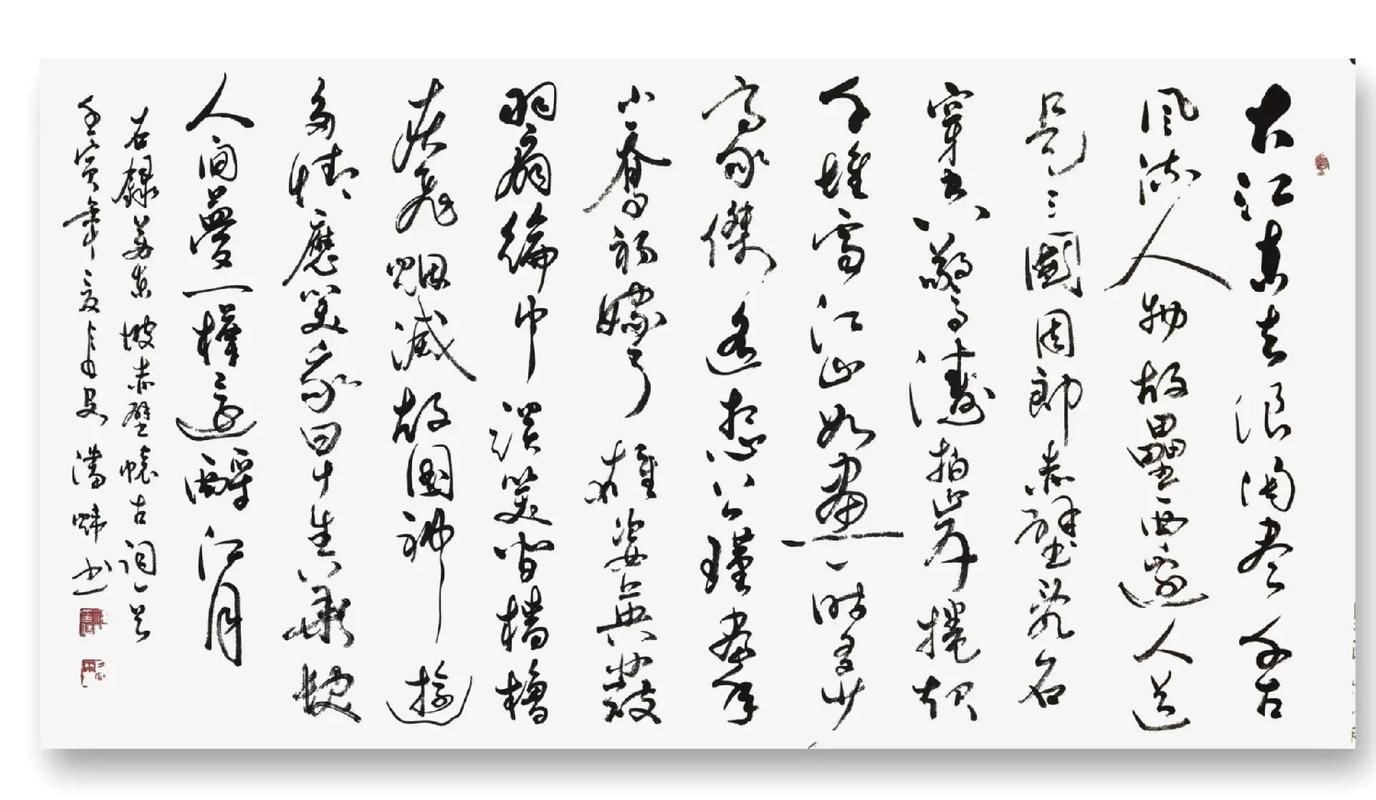 大江東去浪淘尽千古
風流人物故壘西邊人道
是三國周郎赤壁亂石
穿空驚濤拍岸捲起
千堆雪江山如畫一時多少
豪傑遙想公瑾當年
小喬初嫁了雄姿英發
羽扇綸巾談笑間檣櫓
灰飛烟滅故國神遊
多情應笑我早生華髮
人間夢一樽還酹江月
右錄蘇東坡赤壁懷古詞一首
壬寅年夏月 潘 书